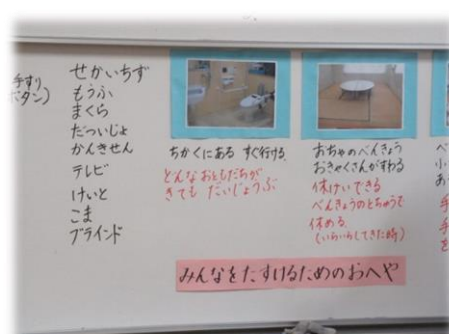 手すり
ボタン)
せかいちず
もうふ
まくら
だついじょ
かんきせん
テレビ
けいと
こま
ブラインド
ちかくにある すぐ行ける。
どんなおともだちが
きても だいじょうぶ
おちゃのべんきょう
おきゃくさんがすわる
休けいできる
べんきょうのとちゅうで
休める。
(いらいらしてきた時)
みんなをたすけるためのおへや